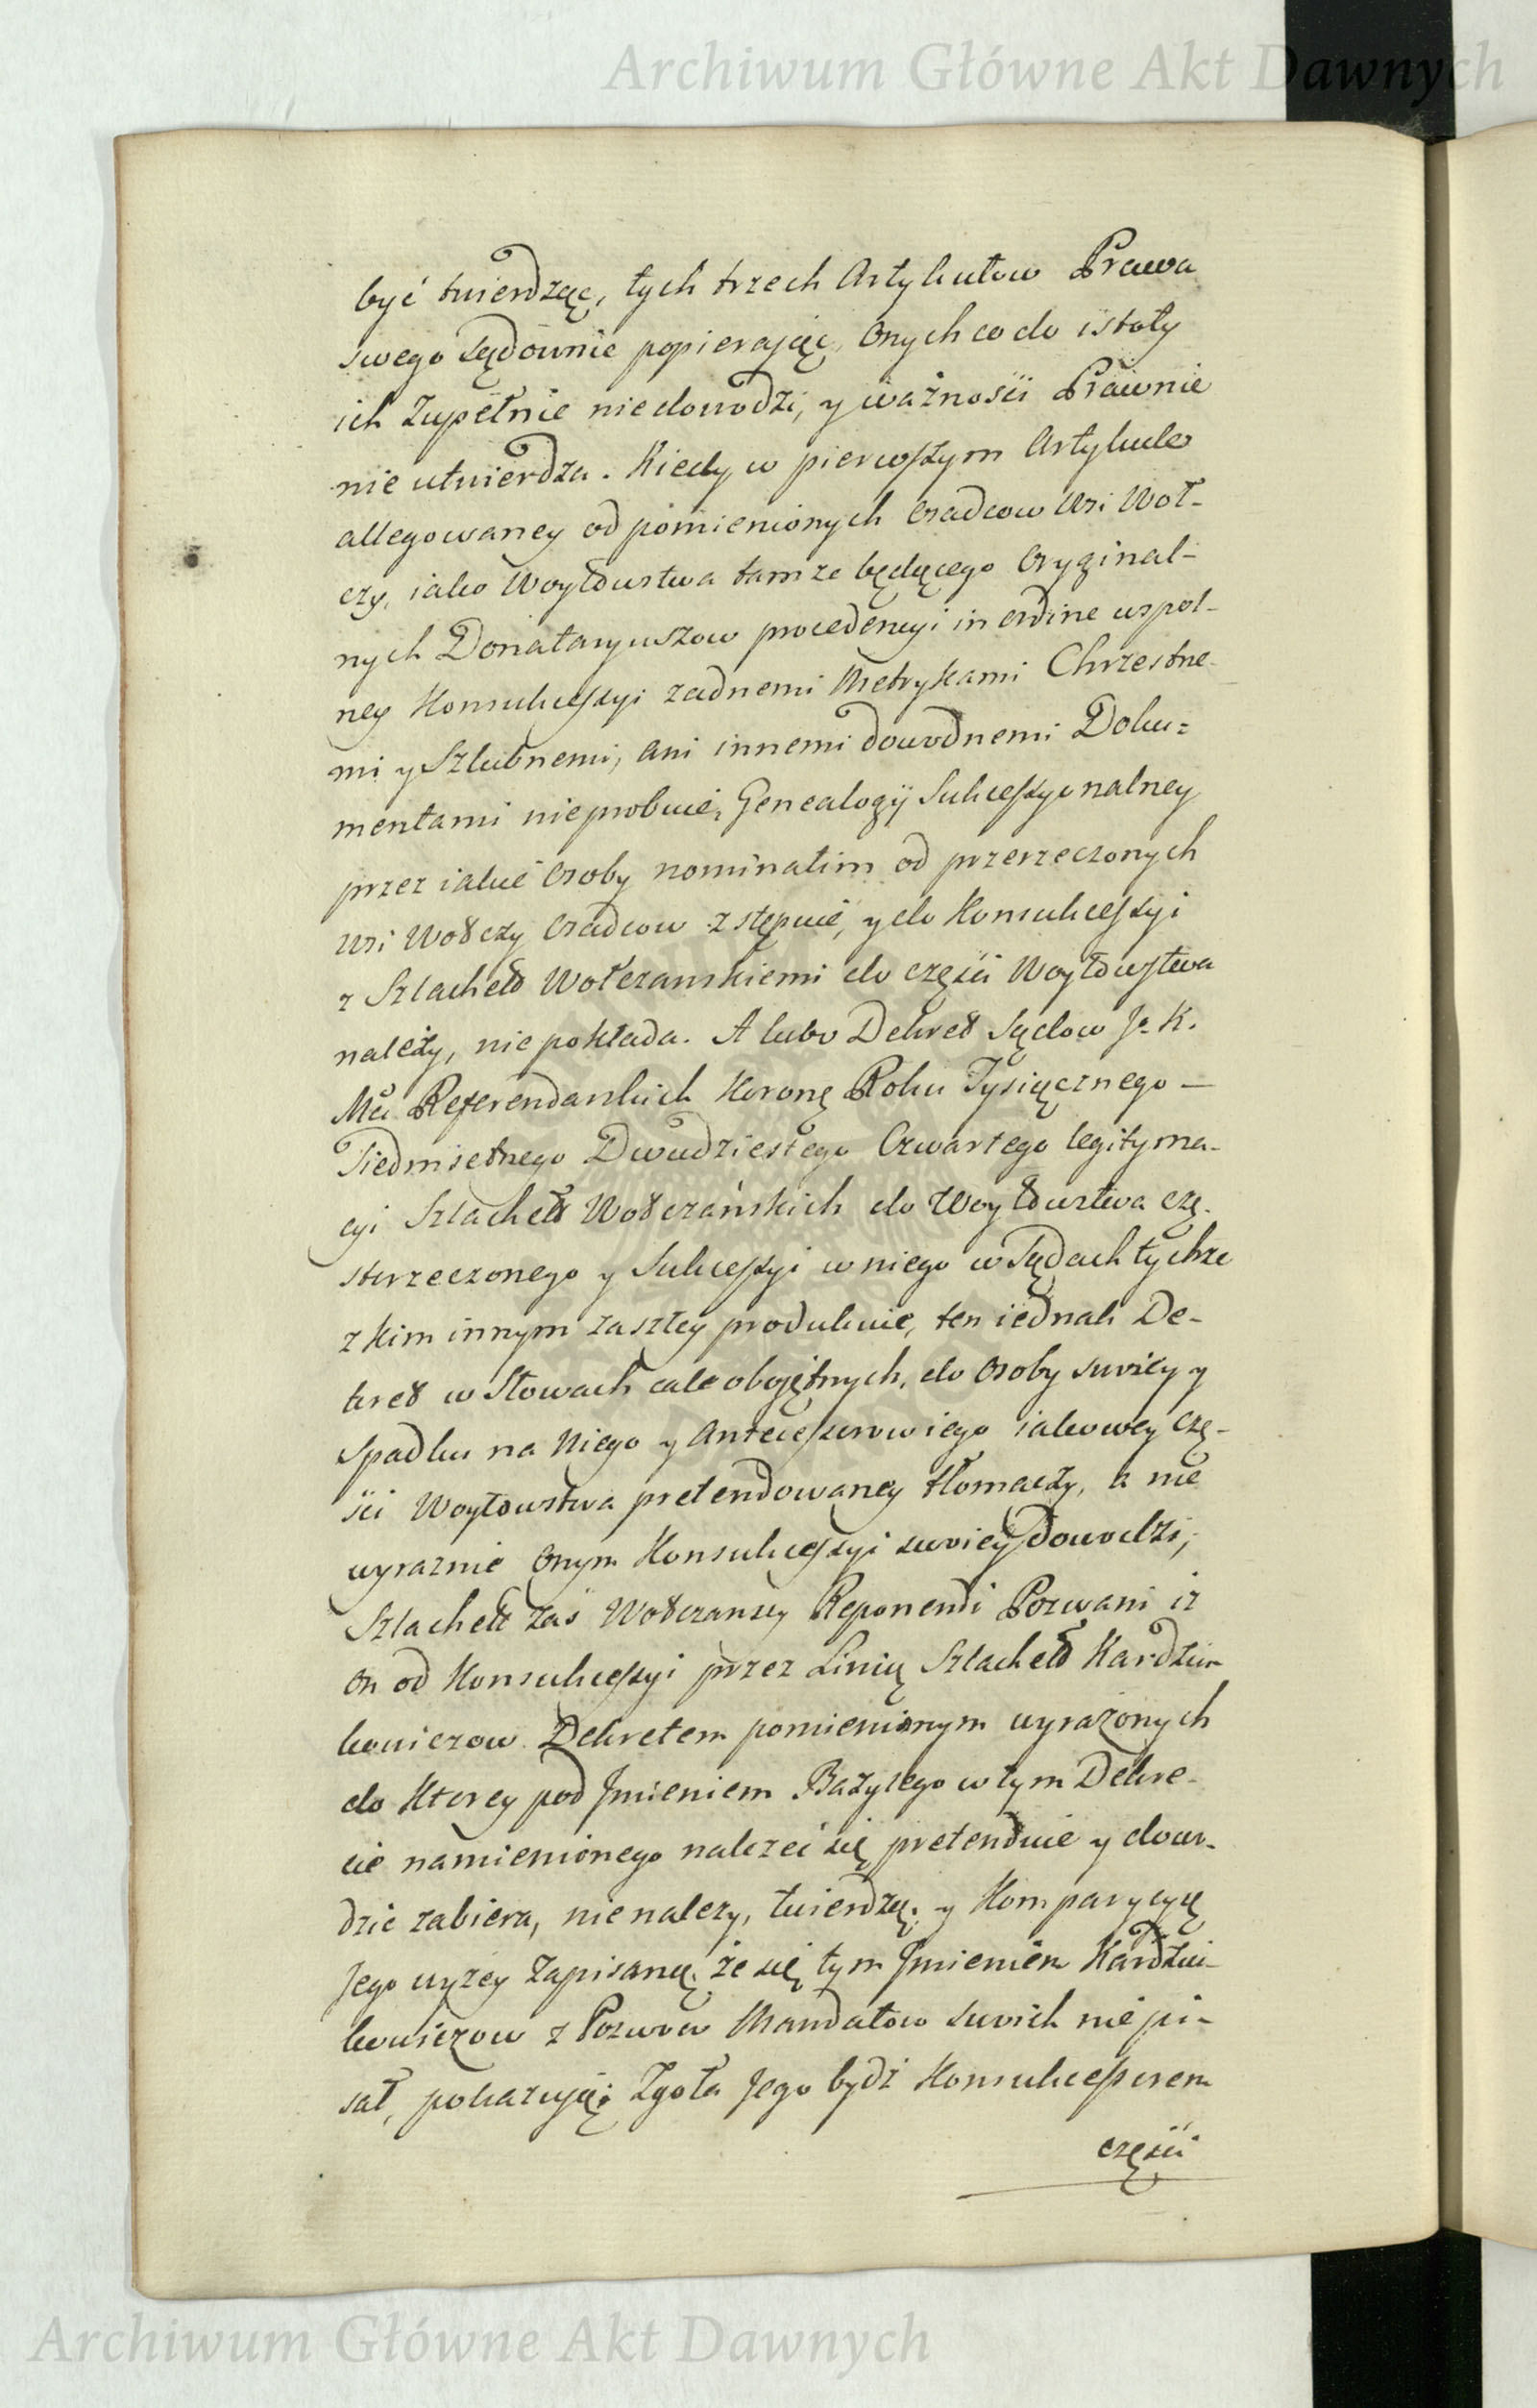 Archiwum Główne Akt Dawnych
być twierdząc, tych trzech Artykułow Prawa
swego Sądownie popierając, Onych co do istoty
ich Zupełnie niedowodzi, y ważności Prawnie
nie utwierdza. Kiedy w pierwszym Artykule
allegowaney od pomienionych Osadcow Wsi Woł-
czy, iako Woytowstwa tamze będącego Oryginal-
nych Donataryuszow procedencyi in ordine wspol-
ney Konsukcessyi zadnemi Metrykami Chrzestne-
mi y Szlubnemi, ani innemi dowodnemi Doku=
mentami nieprobuie, Genealogii Sukcessyonalney
przez iakie Osoby nominatim od przerzeczonych
Wsi Wołczy Osadcow zstępuie, y do Konsukcessyi
z Szlachetd Wołczanskiemi do części Woytowstwa
należy, nie pokłada. A lubo Dekret Sądow J. K.
Mci Referendarskich Koronę Roku Tysiącznego —
Siedmsetnego Dwudziestego Czwartego legityma-
cyi Szlachett Wołczańskich do Woytowstwa czę-
sto rzeczonego y Sukcessyi w niego w Sądach tychże
z kim innym zaszłey produkuie, ten iednak De-
kret w Słowach cale obojętnych, do Osoby swoiey y
Spadku na Niego y Antecessorow iego iakowey czę-
ści Woytowstwa pretendowaney tłomaczy, a nie
wyraznie Onym Konsukcessyi swoiey dowodzi;
Szlachett zaś Wołczanscy Reponendi Pozwani iż
On od Konsukcessyi przez Linią Szlachetd Kardzie
kowiczow Dekretem pomienionym wyrażonych
do Ktorey pod Jmieniem Bazylego w tym Dekre-
cie namienionego nalezeć się pretenduie y dowo-
dzie zabiera, nie nalezy, twierdzą, y Komparycyą
Jego wyzey Zapisaną, że się tym Jmieniem Kardzie-
kowiczow z Pozwow Mandatow swoich nie pi-
sał, pokazując; Zgoła Jego bydź Konsukcessorem
części
Archiwum Główne Akt Dawnych